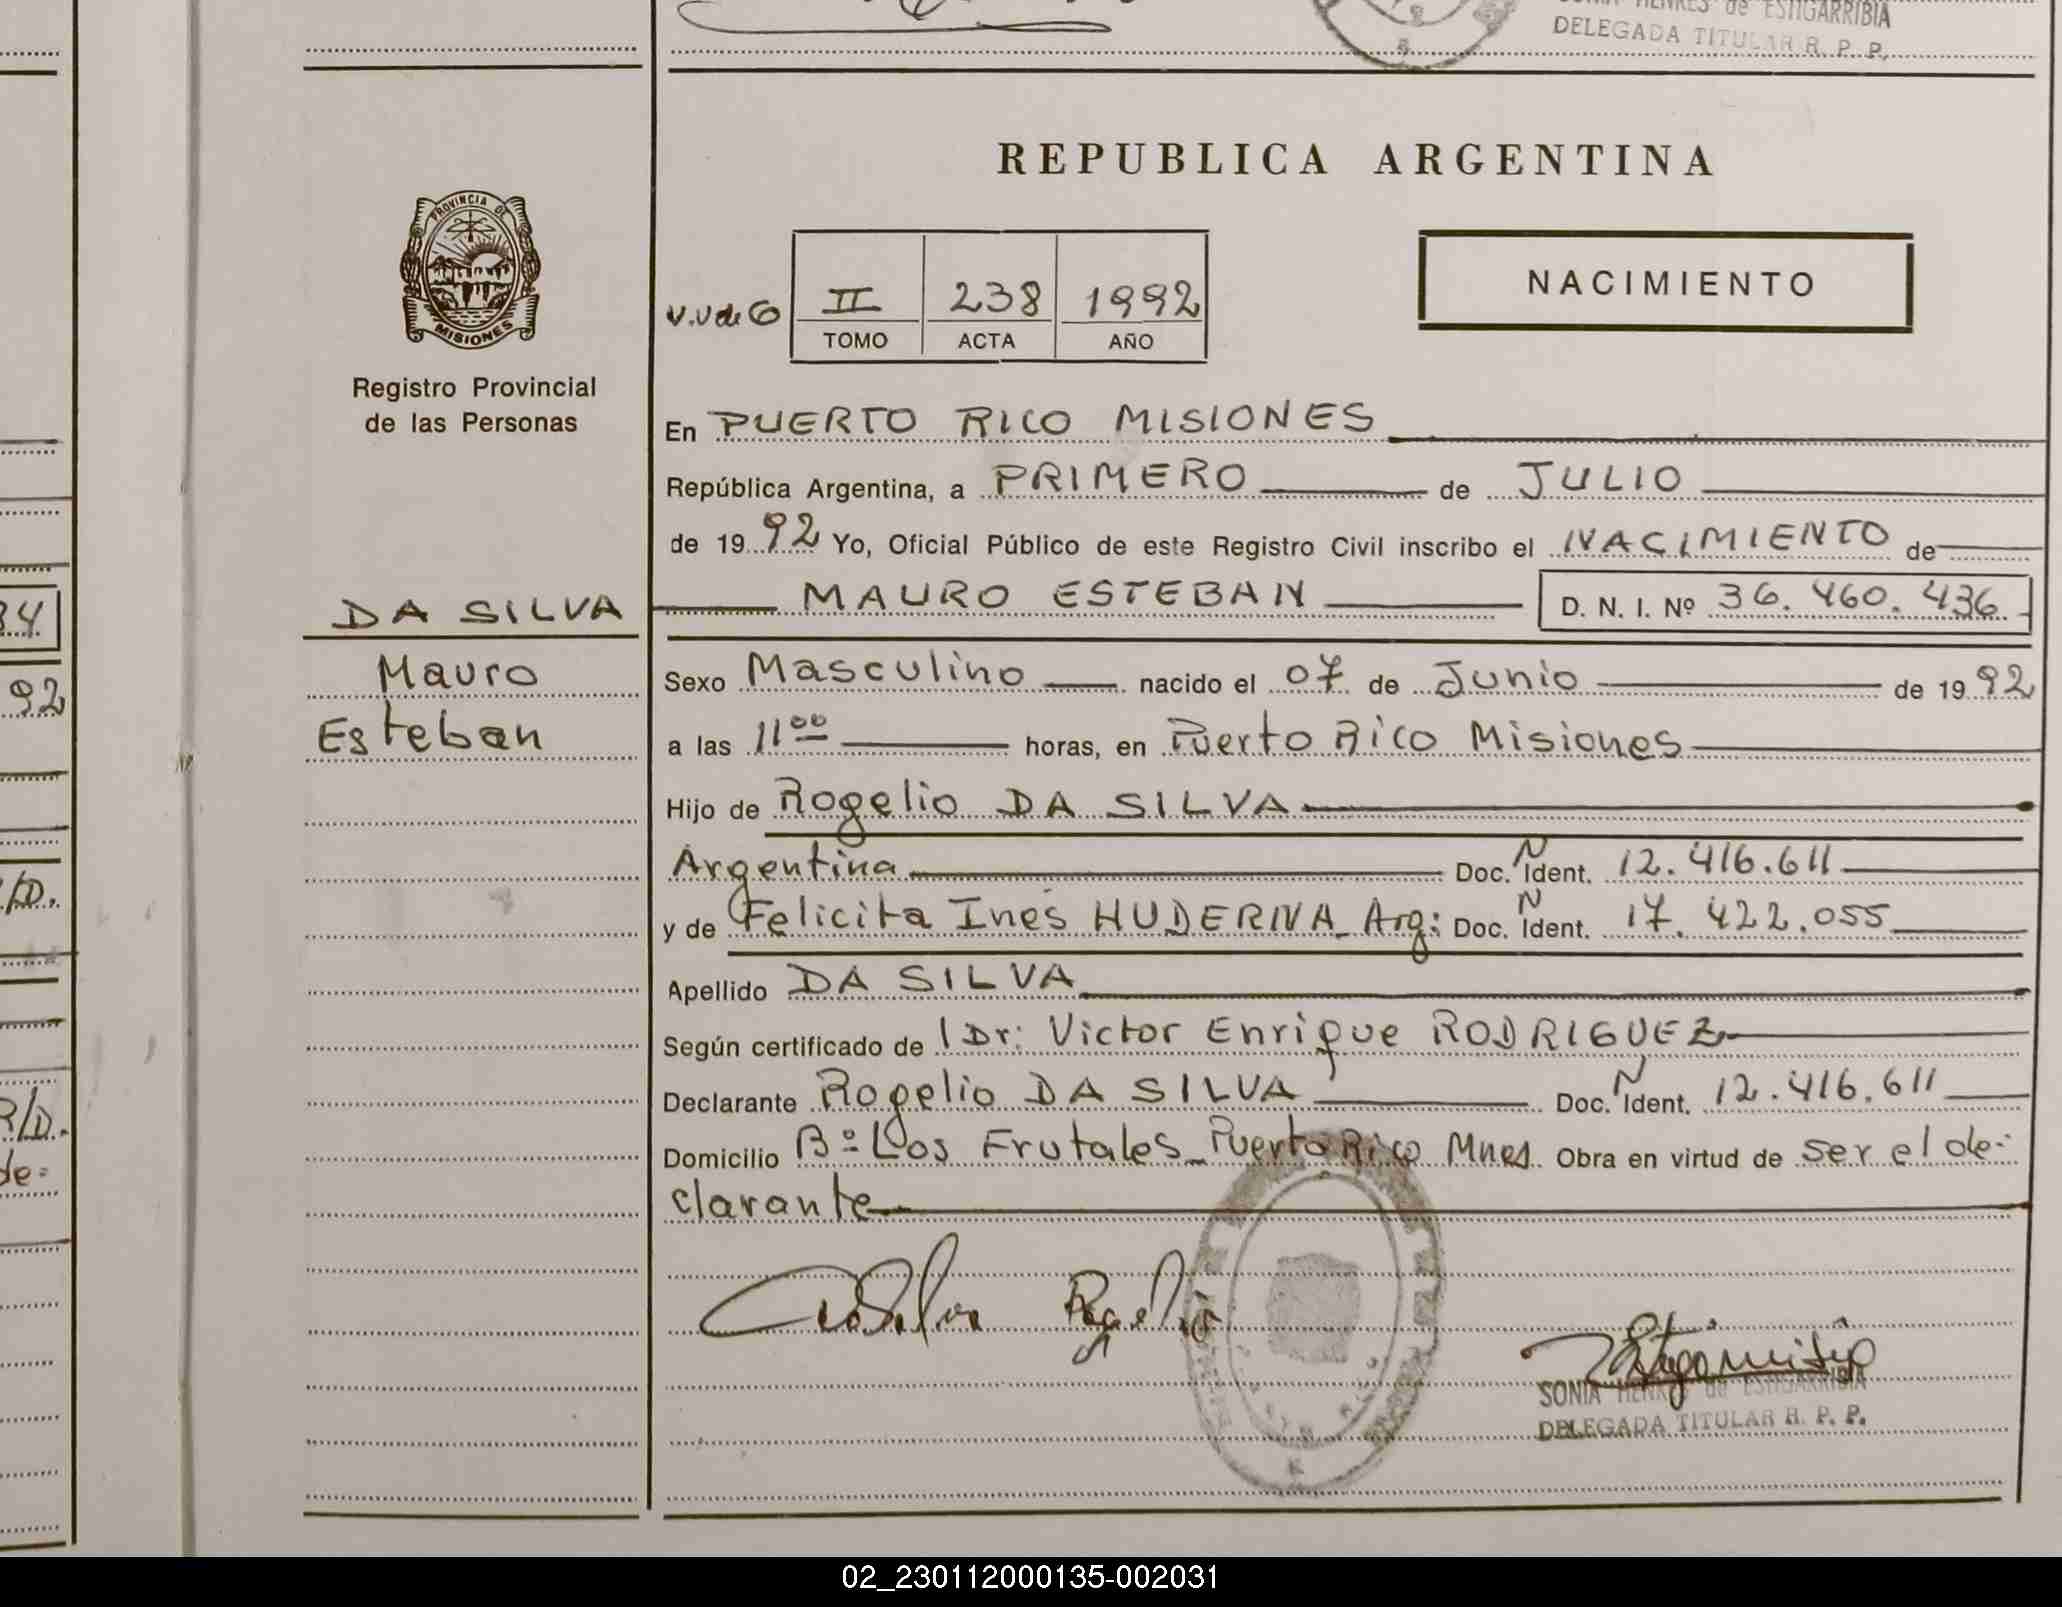 SONIA HENKES de ESTIGARRIBIA
DELEGADA TITULAR R. P. P.
REPUBLICA ARGENTINA
PROVINCIA DE
MISIONES
Registro Provincial
de las Personas
II 238 1992
TOMO ACTA AÑO
NACIMIENTO
En PUERTO RICO MISIONES
República Argentina, a PRIMERO de JULIO
de 1992 Yo, Oficial Público de este Registro Civil inscribo el NACIMIENTO de
MAURO ESTEBAN D. N. I. Nº 36.460.436.
DA SILVA
Mauro
Esteban
Sexo Masculino nacido el 07 de Junio de 1992
a las 11 00 horas, en Puerto Rico Misiones
Hijo de Rogelio DA SILVA
Argentina Doc. N Ident. 12.416.611
y de Felicita Ines HUDERNA Arg: Doc. N Ident. 17.422.055
Apellido DA SILVA
Según certificado de l Dr: Victor Enrique RODRIGUEZ
Declarante Rogelio DA SILVA Doc. N Ident. 12.416.611
Domicilio Bº Los Frutales Puerto Rico Mnes. Obra en virtud de ser el de-
clarante
Da Silva Rogelio
SONIA HENKES de ESTIGARRIBIA
DELEGADA TITULAR R. P. P.
84
92
/D.
R/D.
de=
02_230112000135-002031